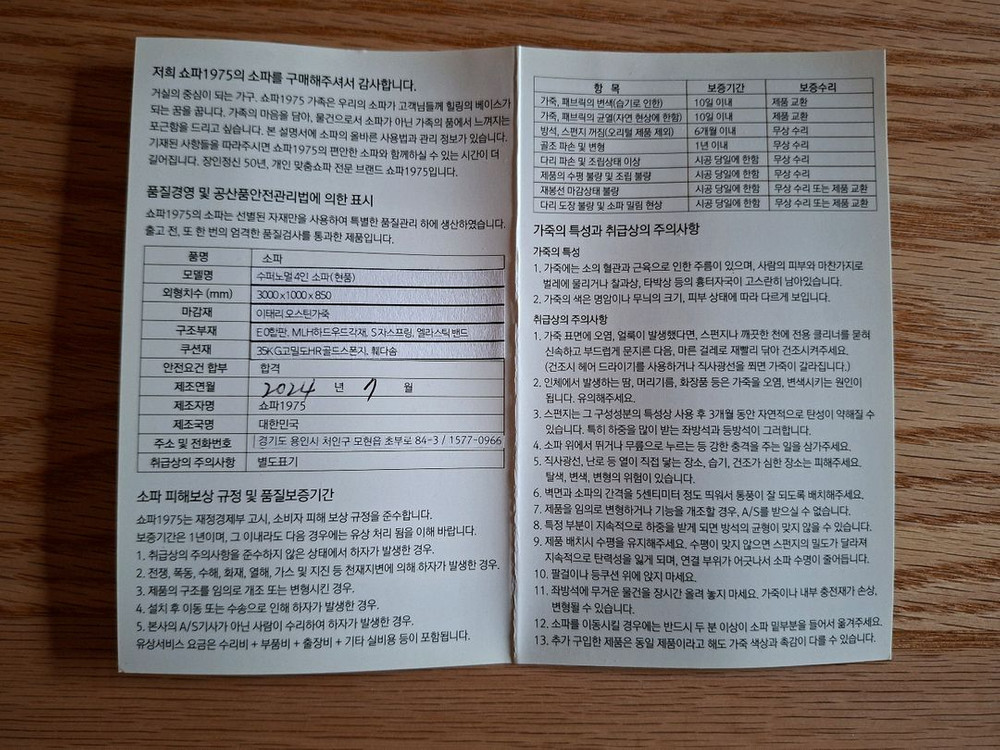 저희 쇼파1975의 소파를 구매해주셔서 감사합니다.
거실의 중심이 되는 가구. 쇼파1975 가족은 우리의 소파가 고객님들께 힐링의 베이스가
되는 꿈을 꿉니다. 가족의 마음을 담아, 물건으로서 소파가 아닌 가족의 품에서 느껴지는
포근함을 드리고 싶습니다. 본 설명서에 소파의 올바른 사용법과 관리 정보가 있습니다.
기재된 사항들을 따라주시면 쇼파1975의 편안한 소파와 함께하실 수 있는 시간이 더
길어집니다. 장인정신 50년, 개인 맞춤쇼파 전문 브랜드 쇼파1975입니다.
품질경영 및 공산품안전관리법에 의한 표시
쇼파1975의 소파는 선별된 자재만을 사용하여 특별한 품질관리 하에 생산하였습니다.
출고 전, 또 한 번의 엄격한 품질검사를 통과한 제품입니다.
품명 소파
모델명 수퍼노멀 4인 소파(현품)
외형치수 (mm) 3000 x 1000 x 850
마감재 이태리 오스틴가죽
구조부재 E0합판, MLH하드우드각재, S자스프링, 엘라스틱 밴드
쿠션재 35KG고밀도HR골드스폰지, 훼다솜
안전요건 합부 합격
제조연월 2024 년 7 월
제조자명 쇼파1975
제조국명 대한민국
주소 및 전화번호 경기도 용인시 처인구 모현읍 초부로 84-3 / 1577-0966
취급상의 주의사항 별도표기
소파 피해보상 규정 및 품질보증기간
쇼파1975는 재정경제부 고시, 소비자 피해 보상 규정을 준수합니다.
보증기간은 1년이며, 그 이내라도 다음 경우에는 유상 처리 됨을 이해 바랍니다.
1. 취급상의 주의사항을 준수하지 않은 상태에서 하자가 발생한 경우.
2. 전쟁, 폭동, 수해, 화재, 열해, 가스 및 지진 등 천재지변에 의해 하자가 발생한 경우.
3. 제품의 구조를 임의로 개조 또는 변형시킨 경우.
4. 설치 후 이동 또는 수송으로 인해 하자가 발생한 경우.
5. 본사의 A/S기사가 아닌 사람이 수리하여 하자가 발생한 경우.
유상서비스 요금은 수리비 + 부품비 + 출장비 + 기타 실비용 등이 포함됩니다.
항 목 보증기간 보증수리
가죽, 패브릭의 변색(습기로 인한) 10일 이내 제품 교환
가죽, 패브릭의 균열(자연 현상에 한함) 10일 이내 제품 교환
방석, 스펀지 꺼짐(오리털 제품 제외) 6개월 이내 무상 수리
골조 파손 및 변형 1년 이내 무상 수리
다리 파손 및 조립상태 이상 시공 당일에 한함 무상 수리
제품의 수평 불량 및 조립 불량 시공 당일에 한함 무상 수리
재봉선 마감상태 불량 시공 당일에 한함 무상 수리 또는 제품 교환
다리 도장 불량 및 소파 밀림 현상 시공 당일에 한함 무상 수리 또는 제품 교환
가죽의 특성과 취급상의 주의사항
가죽의 특성
1. 가죽에는 소의 혈관과 근육으로 인한 주름이 있으며, 사람의 피부와 마찬가지로
벌레에 물리거나 찰과상, 타박상 등의 흉터자국이 고스란히 남아있습니다.
2. 가죽의 색은 명암이나 무늬의 크기, 피부 상태에 따라 다르게 보입니다.
취급상의 주의사항
1. 가죽 표면에 오염, 얼룩이 발생했다면, 스펀지나 깨끗한 천에 전용 클리너를 묻혀
신속하고 부드럽게 문지른 다음, 마른 걸레로 재빨리 닦아 건조시켜주세요.
(건조시 헤어 드라이기를 사용하거나 직사광선을 쬐면 가죽이 갈라집니다.)
2. 인체에서 발생하는 땀, 머리기름, 화장품 등은 가죽을 오염, 변색시키는 원인이
됩니다. 유의해주세요.
3. 스펀지는 그 구성성분의 특성상 사용 후 3개월 동안 자연적으로 탄성이 약해질 수
있습니다. 특히 하중을 많이 받는 좌방석과 등방석이 그러합니다.
4. 소파 위에서 뛰거나 무릎으로 누르는 등 강한 충격을 주는 일을 삼가주세요.
5. 직사광선, 난로 등 열이 직접 닿는 장소, 습기, 건조가 심한 장소는 피해주세요.
탈색, 변색, 변형의 위험이 있습니다.
6. 벽면과 소파의 간격을 5센티미터 정도 띄워서 통풍이 잘 되도록 배치해주세요.
7. 제품을 임의로 변형하거나 기능을 개조할 경우, A/S를 받으실 수 없습니다.
8. 특정 부분이 지속적으로 하중을 받게 되면 방석의 균형이 맞지 않을 수 있습니다.
9. 제품 배치시 수평을 유지해주세요. 수평이 맞지 않으면 스펀지의 밀도가 달라져
지속적으로 탄력성을 잃게 되며, 연결 부위가 어긋나서 소파 수명이 줄어듭니다.
10. 팔걸이나 등쿠션 위에 앉지 마세요.
11. 좌방석에 무거운 물건을 장시간 올려 놓지 마세요. 가죽이나 내부 충전재가 손상,
변형될 수 있습니다.
12. 소파를 이동시킬 경우에는 반드시 두 분 이상이 소파 밑부분을 들어서 옮겨주세요.
13. 추가 구입한 제품은 동일 제품이라고 해도 가죽 색상과 촉감이 다를 수 있습니다.